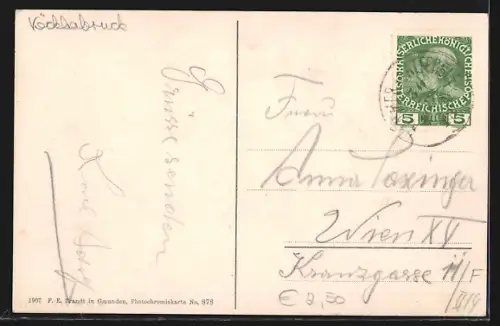 Vöcklabruck
Grüsse senden
Karl
KAISERLICHE KÖNIGLICHE
ÖSTERREICHISCHE
5 5
Frau
Anna
Wien XV
Kranzgasse 11/F
€ 8,50
1907 F. E. Brandt in Gmunden, Photochromiekarte No. 978